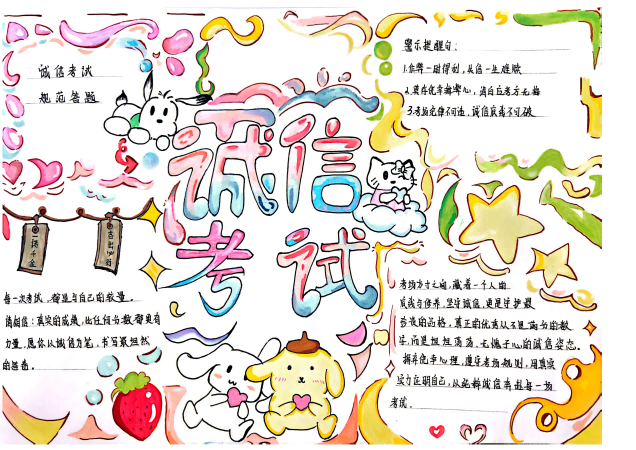 诚信考试
规范答题
警示提醒白：
1.作弊一时得利，失信一生难赎
3.考场纪律不可违，诚信底线不可破
诚信
考试
一诺千金
每一次考试，都是与自己的较量。
请相信：真实的成绩，比任何分数都更有
力量，愿你以诚信为笔，书写最坦然
的答卷。
考场方寸之间，藏着一个人的
成长与修养，坚守诚信，便是守护最
珍贵的品格，真正的优秀从不是满分的数
字，而是坦坦荡荡、无愧于心的诚信姿态。
摒弃侥幸心理，遵守考场规则，用真实
实力证明自己，从
考试。